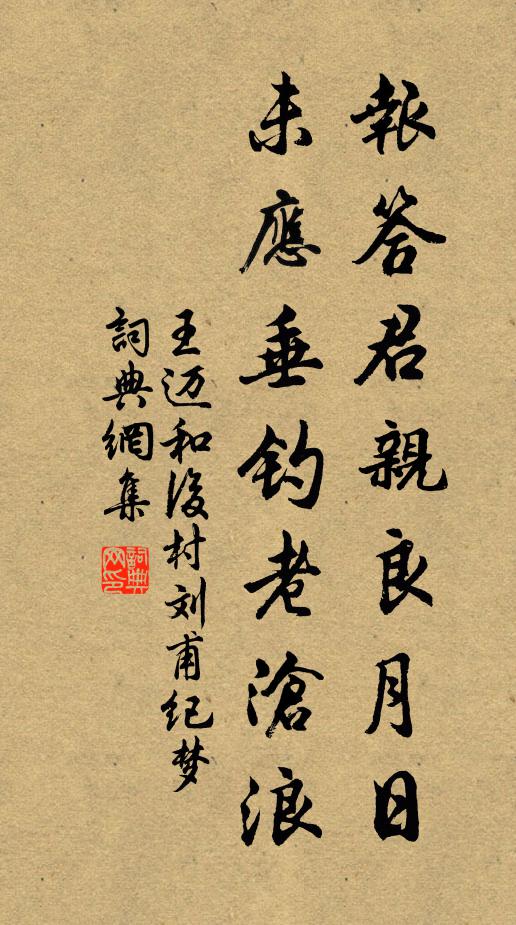 報答君親良月日
未應垂釣老滄浪
王迈和後村刘甫纪梦
詞典網集
詞典网印